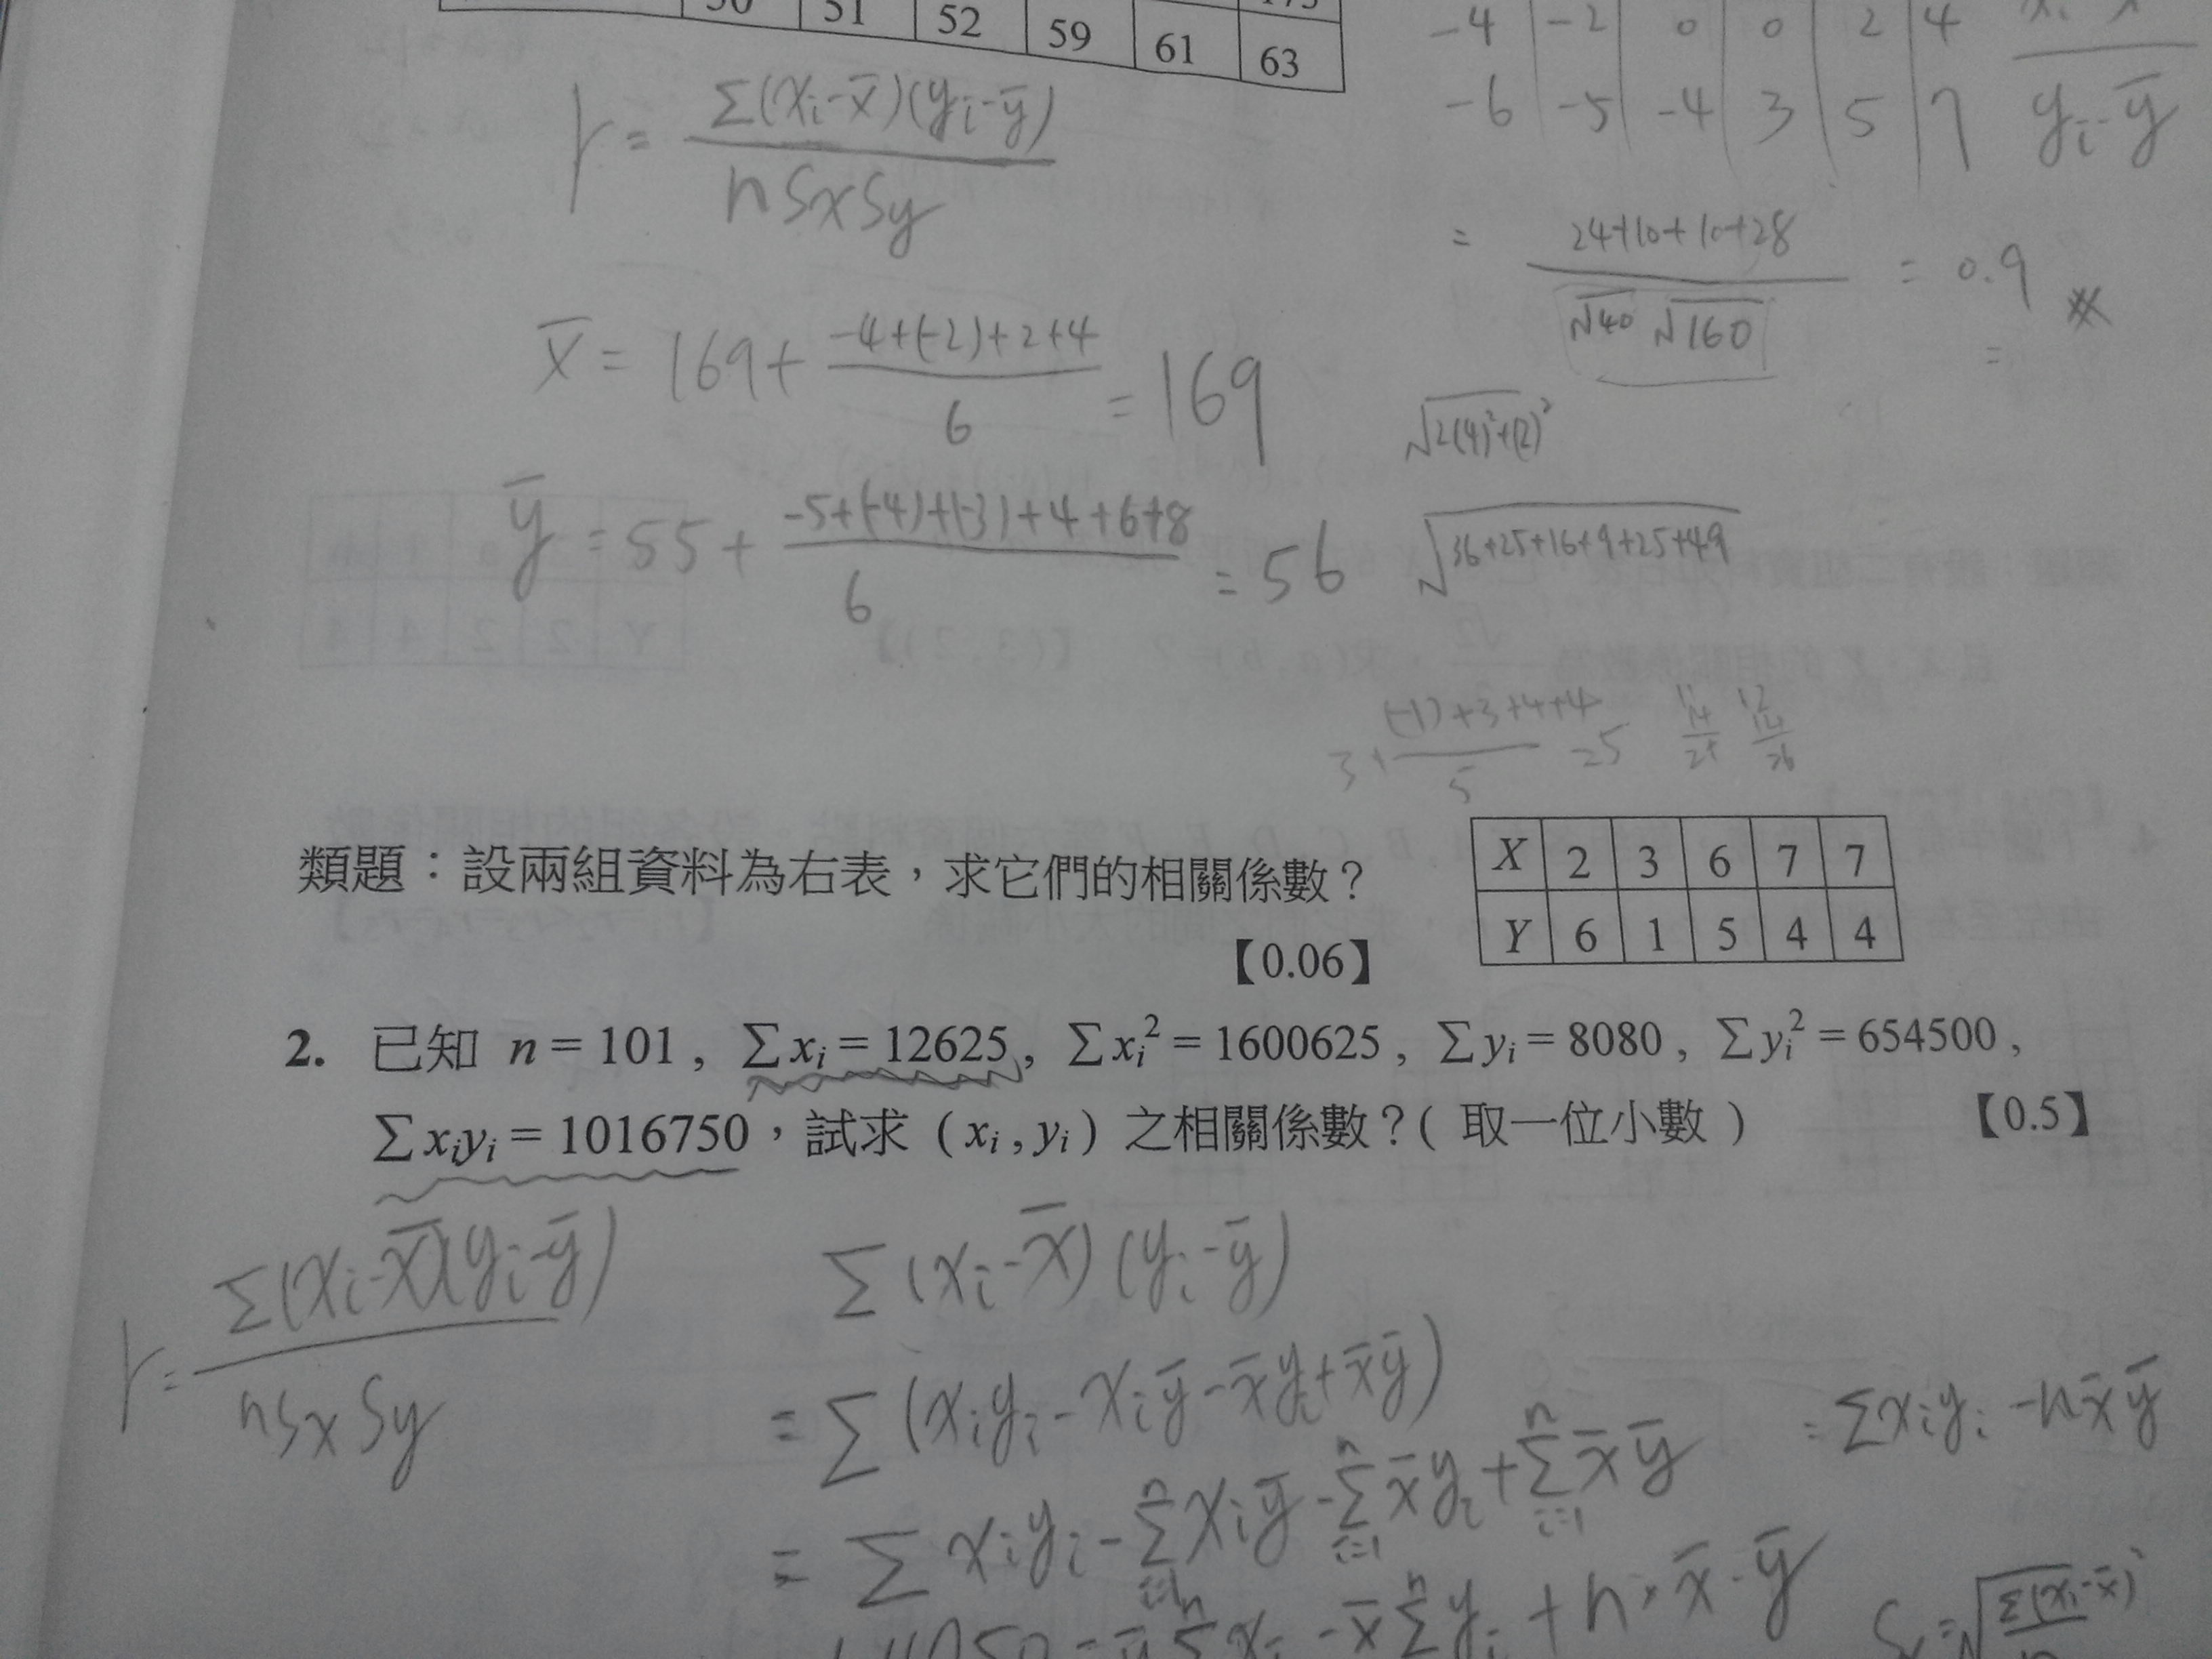 51 52 59 61 63
-4 -2 0 0 2 4
-6 -5 -4 3 5 7 yᵢ-ȳ
r = Σ(xᵢ-x̄)(yᵢ-ȳ) / nSxSy
= 24+10+10+28 / √40 √160 = 0.9
x̄ = 169 + -4+(-2)+2+4 / 6 = 169
√2(4)²+(2)²
ȳ = 55 + -5+(-4)+(-3)+4+6+8 / 6 = 56
√36+25+16+9+25+49
3+ (-1)+3+4+4 / 5 =5
類題：設兩組資料為右表，求它們的相關係數？
【0.06】
X 2 3 6 7 7
Y 6 1 5 4 4
2. 已知 n = 101 , ∑xᵢ = 12625 , ∑xᵢ² = 1600625 , ∑yᵢ = 8080 , ∑yᵢ² = 654500 ,
∑xᵢyᵢ = 1016750，試求 ( xᵢ , yᵢ ) 之相關係數？( 取一位小數 ) 【0.5】
r = Σ(xᵢ-x̄)(yᵢ-ȳ) / nSxSy
Σ(xᵢ-x̄)(yᵢ-ȳ)
= Σ(xᵢyᵢ-xᵢȳ-x̄yᵢ+x̄ȳ)
= Σxᵢyᵢ-nx̄ȳ
= Σxᵢyᵢ - Σⁿᵢ₌₁xᵢȳ - Σⁿᵢ₌₁x̄yᵢ + Σⁿᵢ₌₁x̄ȳ
- x̄Σⁿyᵢ + n·x̄·ȳ